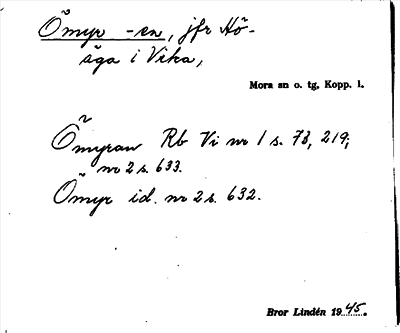 Ömyr -en, jfr Hö-
säga i Vika,
Mora sn o. tg, Kopp. l.
Ömyran Rb Vi nr 1 s. 78, 219;
nr 2 s. 633.
Ömyr id. nr 2 s. 632.
Bror Lindén 1945.